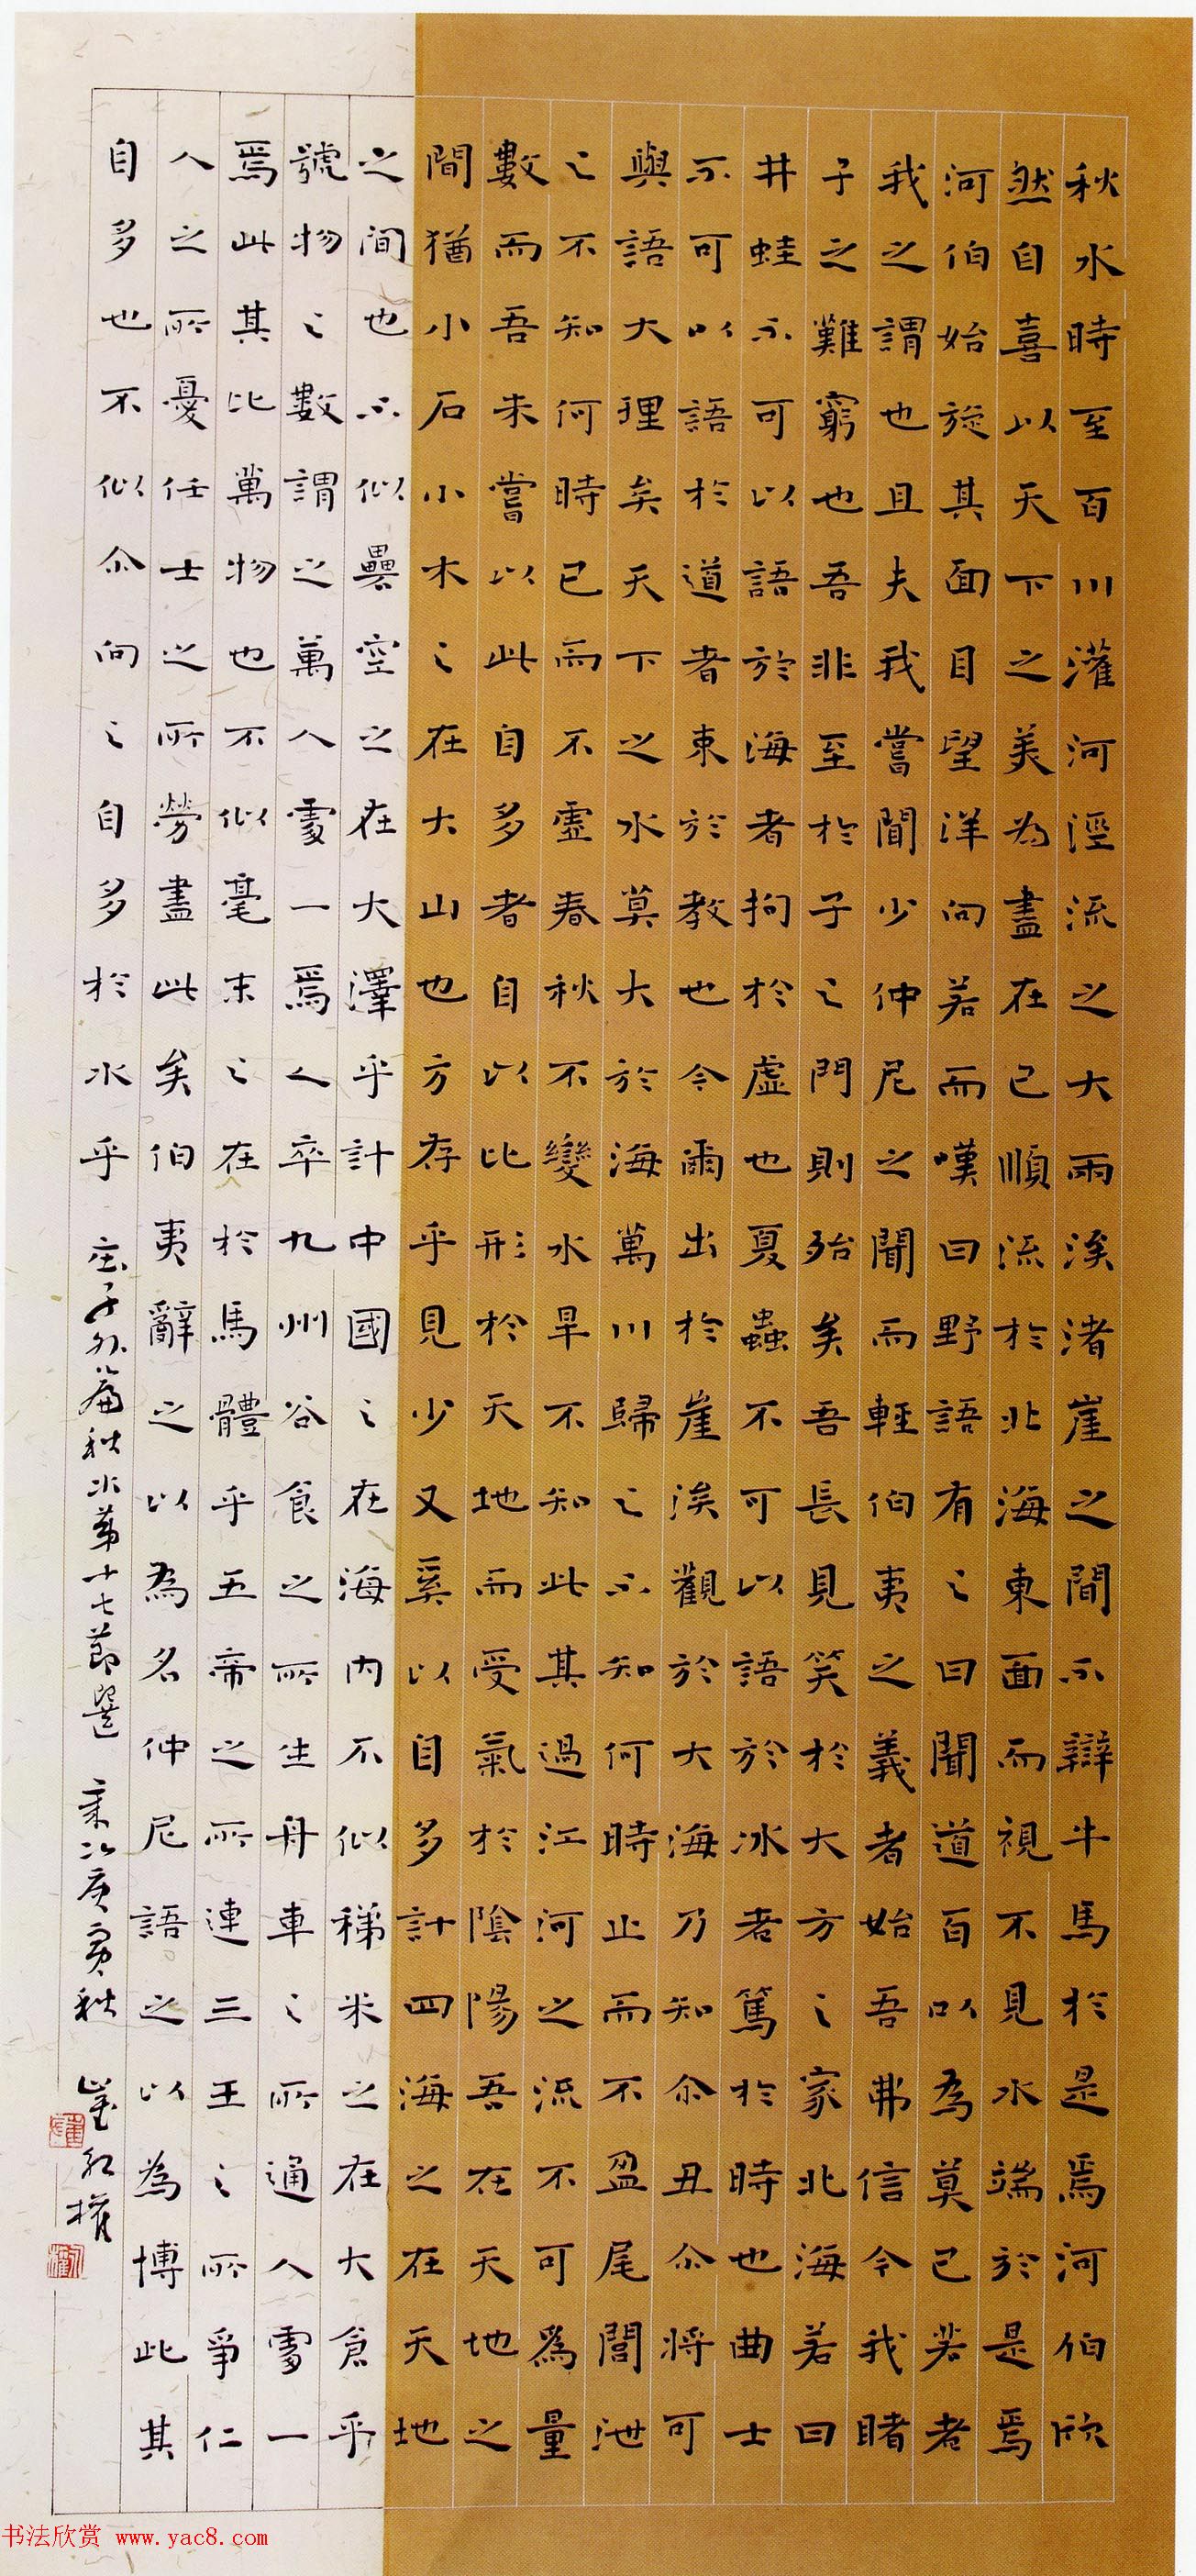 秋水時至百川灌河涇流之大兩涘渚崖之間不辯牛馬於是焉河伯欣
然自喜以天下之美為盡在己順流於北海東面而視不見水端於是焉
河伯始旋其面目望洋向若而嘆曰野語有之曰聞道百以為莫己若者
我之謂也且夫我嘗聞少仲尼之聞而輕伯夷之義者始吾弗信今我睹
子之難窮也吾非至於子之門則殆矣吾長見笑於大方之家北海若曰
井蛙不可以語於海者拘於虛也夏蟲不可以語於冰者篤於時也曲士
不可以語於道者束於教也今爾出於崖涘觀於大海乃知尒丑尒將可
與語大理矣天下之水莫大於海萬川歸之不知何時止而不盈尾閭泄
之不知何時已而不虛春秋不變水旱不知此其過江河之流不可為量
數而吾未嘗以此自多者自以比形於天地而受氣於陰陽吾在天地之
間猶小石小木之在大山也方存乎見少又奚以自多計四海之在天地
之間也不似礨空之在大澤乎計中國之在海內不似稊米之在大倉乎
號物之數謂之萬人處一焉人卒九州谷食之所生舟車之所通人處一
焉此其比萬物也不似毫末之在於馬體乎五帝之所連三王之所爭仁
人之所憂任士之所勞盡此矣伯夷辭之以為名仲尼語之以為博此其
自多也不似尒向之自多於水乎 庄子外篇秋水第十七節選 庚寅秋
书法欣赏 www.yac8.com